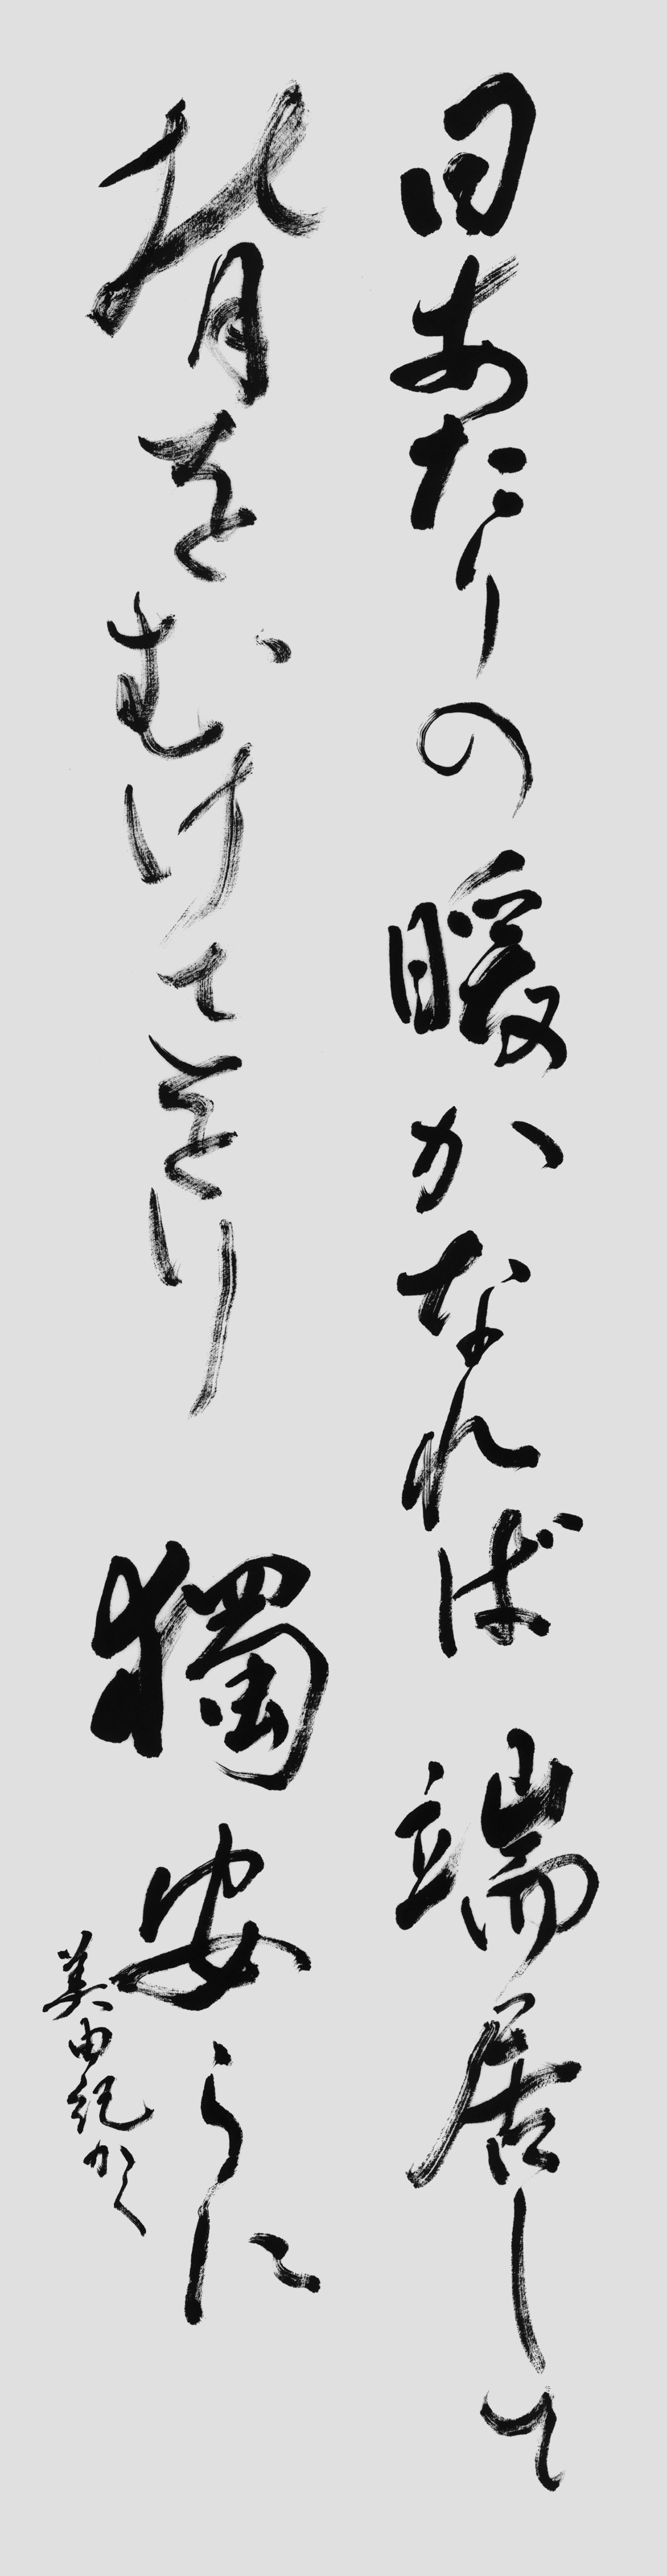 日あたりの暖かなれば端居して
背をむけてをり獨安らに
美由紀かく